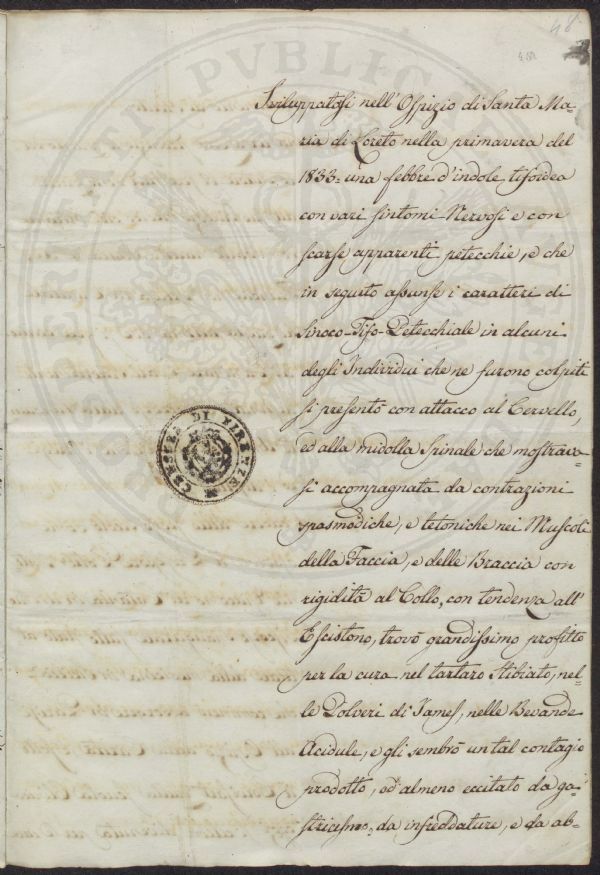 48
Sviluppatosi nell'Ospizio di Santa Ma=
ria di Loreto nella primavera del
1833= una febbre d'indole tifoidea
con vari sintomi Nervosi e con
scarse apparenti petecchie, e che
in seguito assunse i caratteri di
Sinoco-Tifo-Petecchiale in alcuni
degli Individui che ne furono colpiti
si presentò con attacco al Cervello,
ed alla midolla Spinale che mostrava=
si accompagnata da contrazioni
spasmodiche, e tetoniche nei Muscoli
della Faccia, e delle Braccia con
rigidità al Collo, con tendenza all'
Escistono, trovò grandissimo profitto
per la cura nel tartaro Stibiato, nel=
le Polveri di James, nelle Bevande
Acidule, e gli sembrò un tal contagio
prodotto, od almeno eccitato da ga=
stricismo, da infreddature, e da ab=
CENSURA DI FIRENZE
PUBLICA